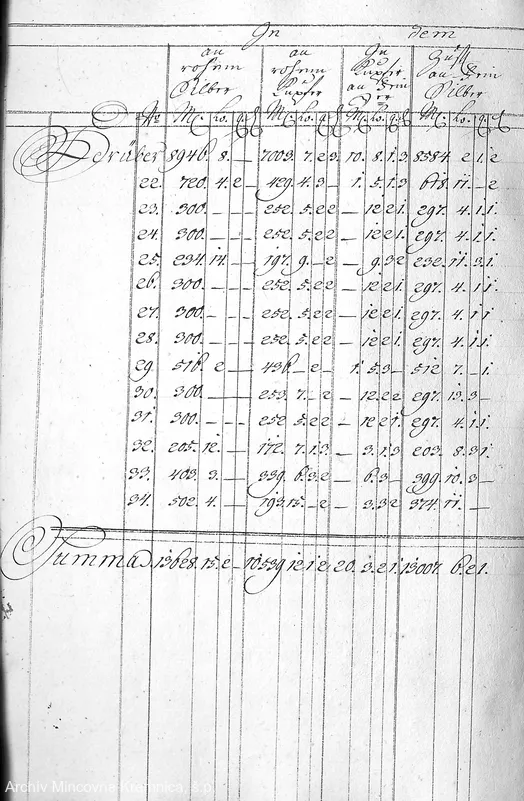 In dem
an rohem Silber | an rohem Kupfer | In Kupfer an dem | an dem Silber
No | M. Lo. q. | M. Lo. q. | M. Lo. q. | M. Lo. q.
Herüber 8946. 8. — 7009. 7. 2 3. 10. 8. 1. 3 8584 2 1. 2
22. 720. 4. 2 — 429. 4. 3 — 1. 5. 1. 3 618. 11. — 2
23. 300. — — — 252. 5. 2 2 — 12 2 1. 297. 4. 1. 1.
24. 300. — — — 252. 5. 2 2 — 12 2 1. 297. 4. 1. 1.
25. 234. 14. — — 197. 9. — 2 — 9. 3 2 232. 11. 3. 1.
26. 300. — — — 252. 5. 2 2 — 12 2 1. 297. 4. 1. 1.
27. 300. — — — 252. 5. 2 2 — 12 2 1. 297. 4. 1 1
28. 300. — — — 252. 5. 2 2 — 12 2 1. 297. 4. 1. 1
29. 516. 2 — — 436. — — 2 1. 5. 3 — 512 7. — 1.
30. 300. — — — 253. 7. — 2 — 12. 2 2 297. 13. 3 —
31. 300. — — — 252 5. 2 2 — 12 2 1. 297. 4. 1. 1.
32. 205. 12. — — 172. 7. 1. 3 — 3. 1. 3 203. 8. 3 1.
33. 403. 3. — — 339. 6. 3. 2 — 6. 3 — 399. 10. 3 —
34. 502. 4. — — 193. 15. — 2 — 3. 3 2 374. 11. —
Summa. 13628. 15. 2 — 10539. 12. 1. 2. 20. 3. 2 1. 13007. 6. 2 1.
Archív Mincovne Kremnica, š.p.